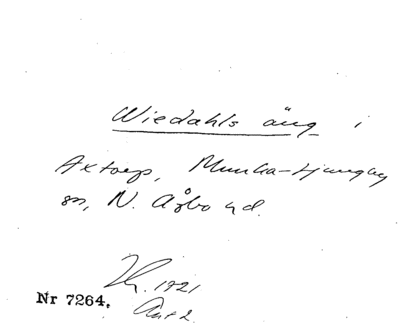 Wiedahls äng i
Axtorp, Munka-Ljungby
sn, N. Åsbo hd.
1921
Nr 7264.